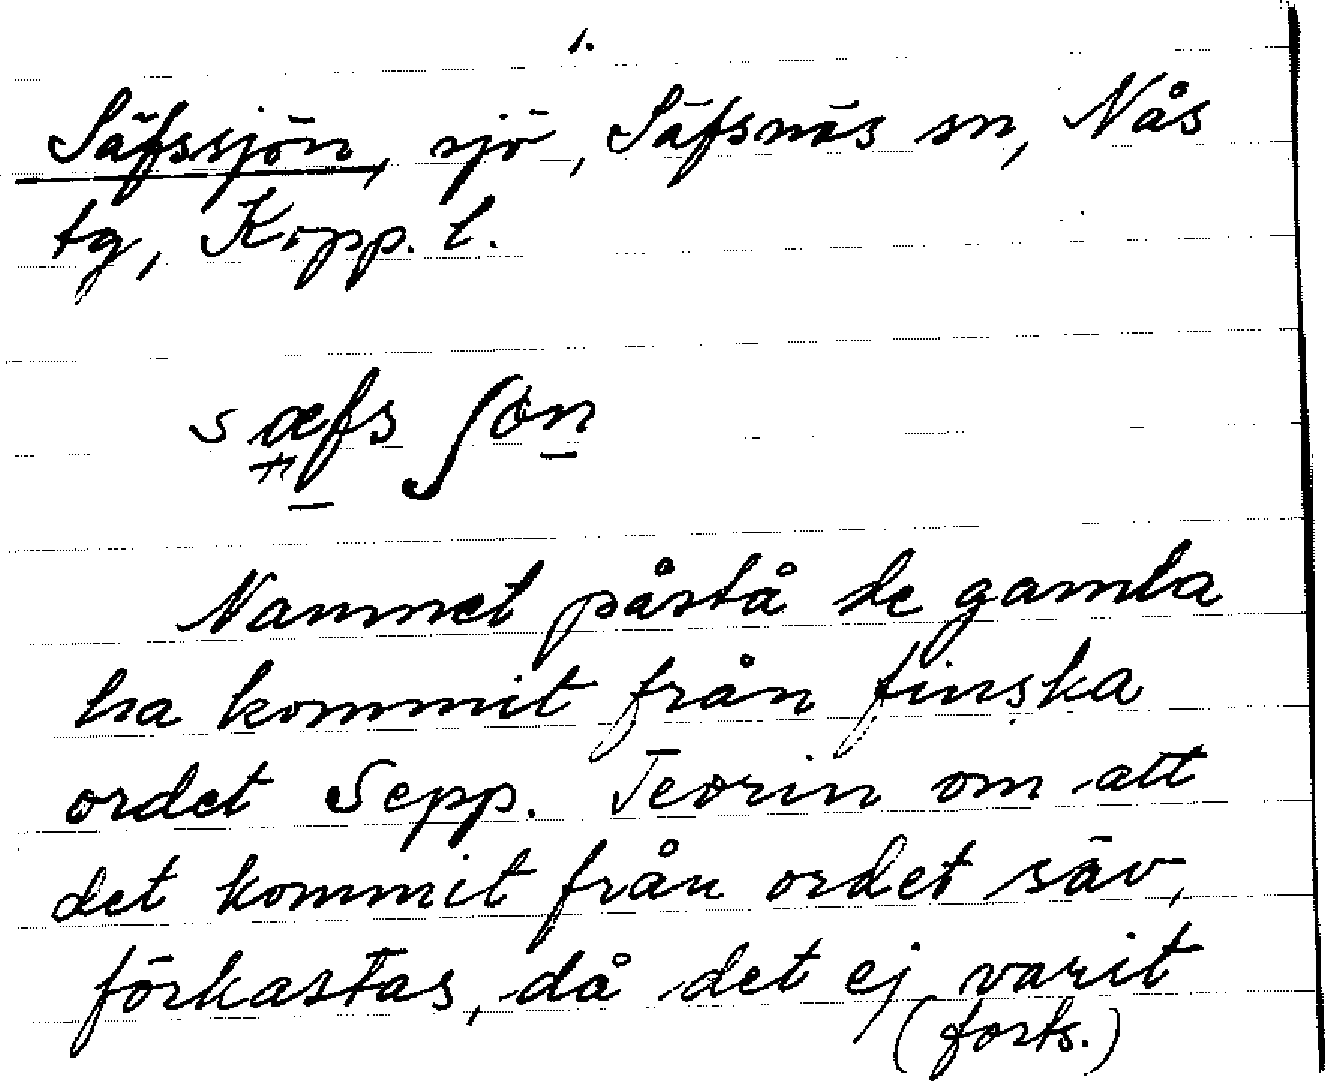 1.
Säfssjön, sjö, Säfsnäs sn, Nås
tg, Kopp. l.
sæfs ʃön
Namnet påstå de gamla
ha kommit från finska
ordet Sepp. Teorin om att
det kommit från ordet säv,
förkastas, då det ej varit
(forts.)